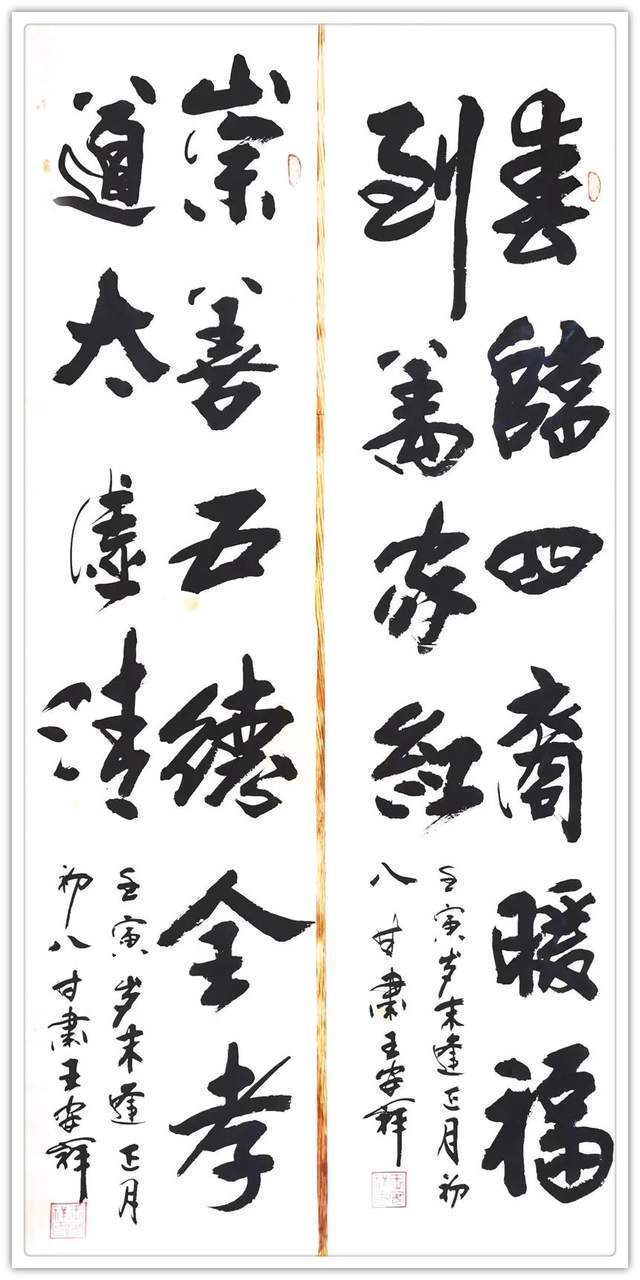 春臨四裔暖福
到萬家紅
壬寅岁末逢正月初
八甘肅王安祥
崇善五德全孝
道太清
壬寅岁末逢正月
初八甘肅王安祥